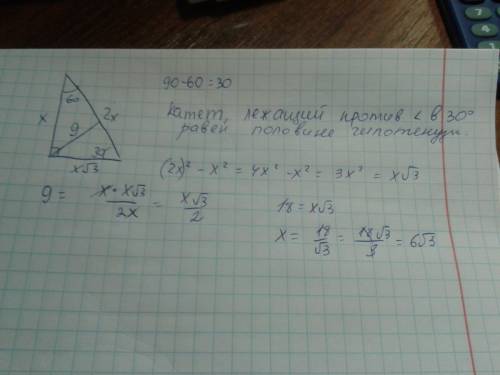 90-60=30
60
x
2x
9
30
x√3
Катет, лежащий против < в 30°
равен половине гипотенузы.
(2x)² - x² = 4x² - x² = 3x² = x√3
9 = x·x√3/2x = x√3/2
18 = x√3
x = 18/√3 = 18√3/3 = 6√3